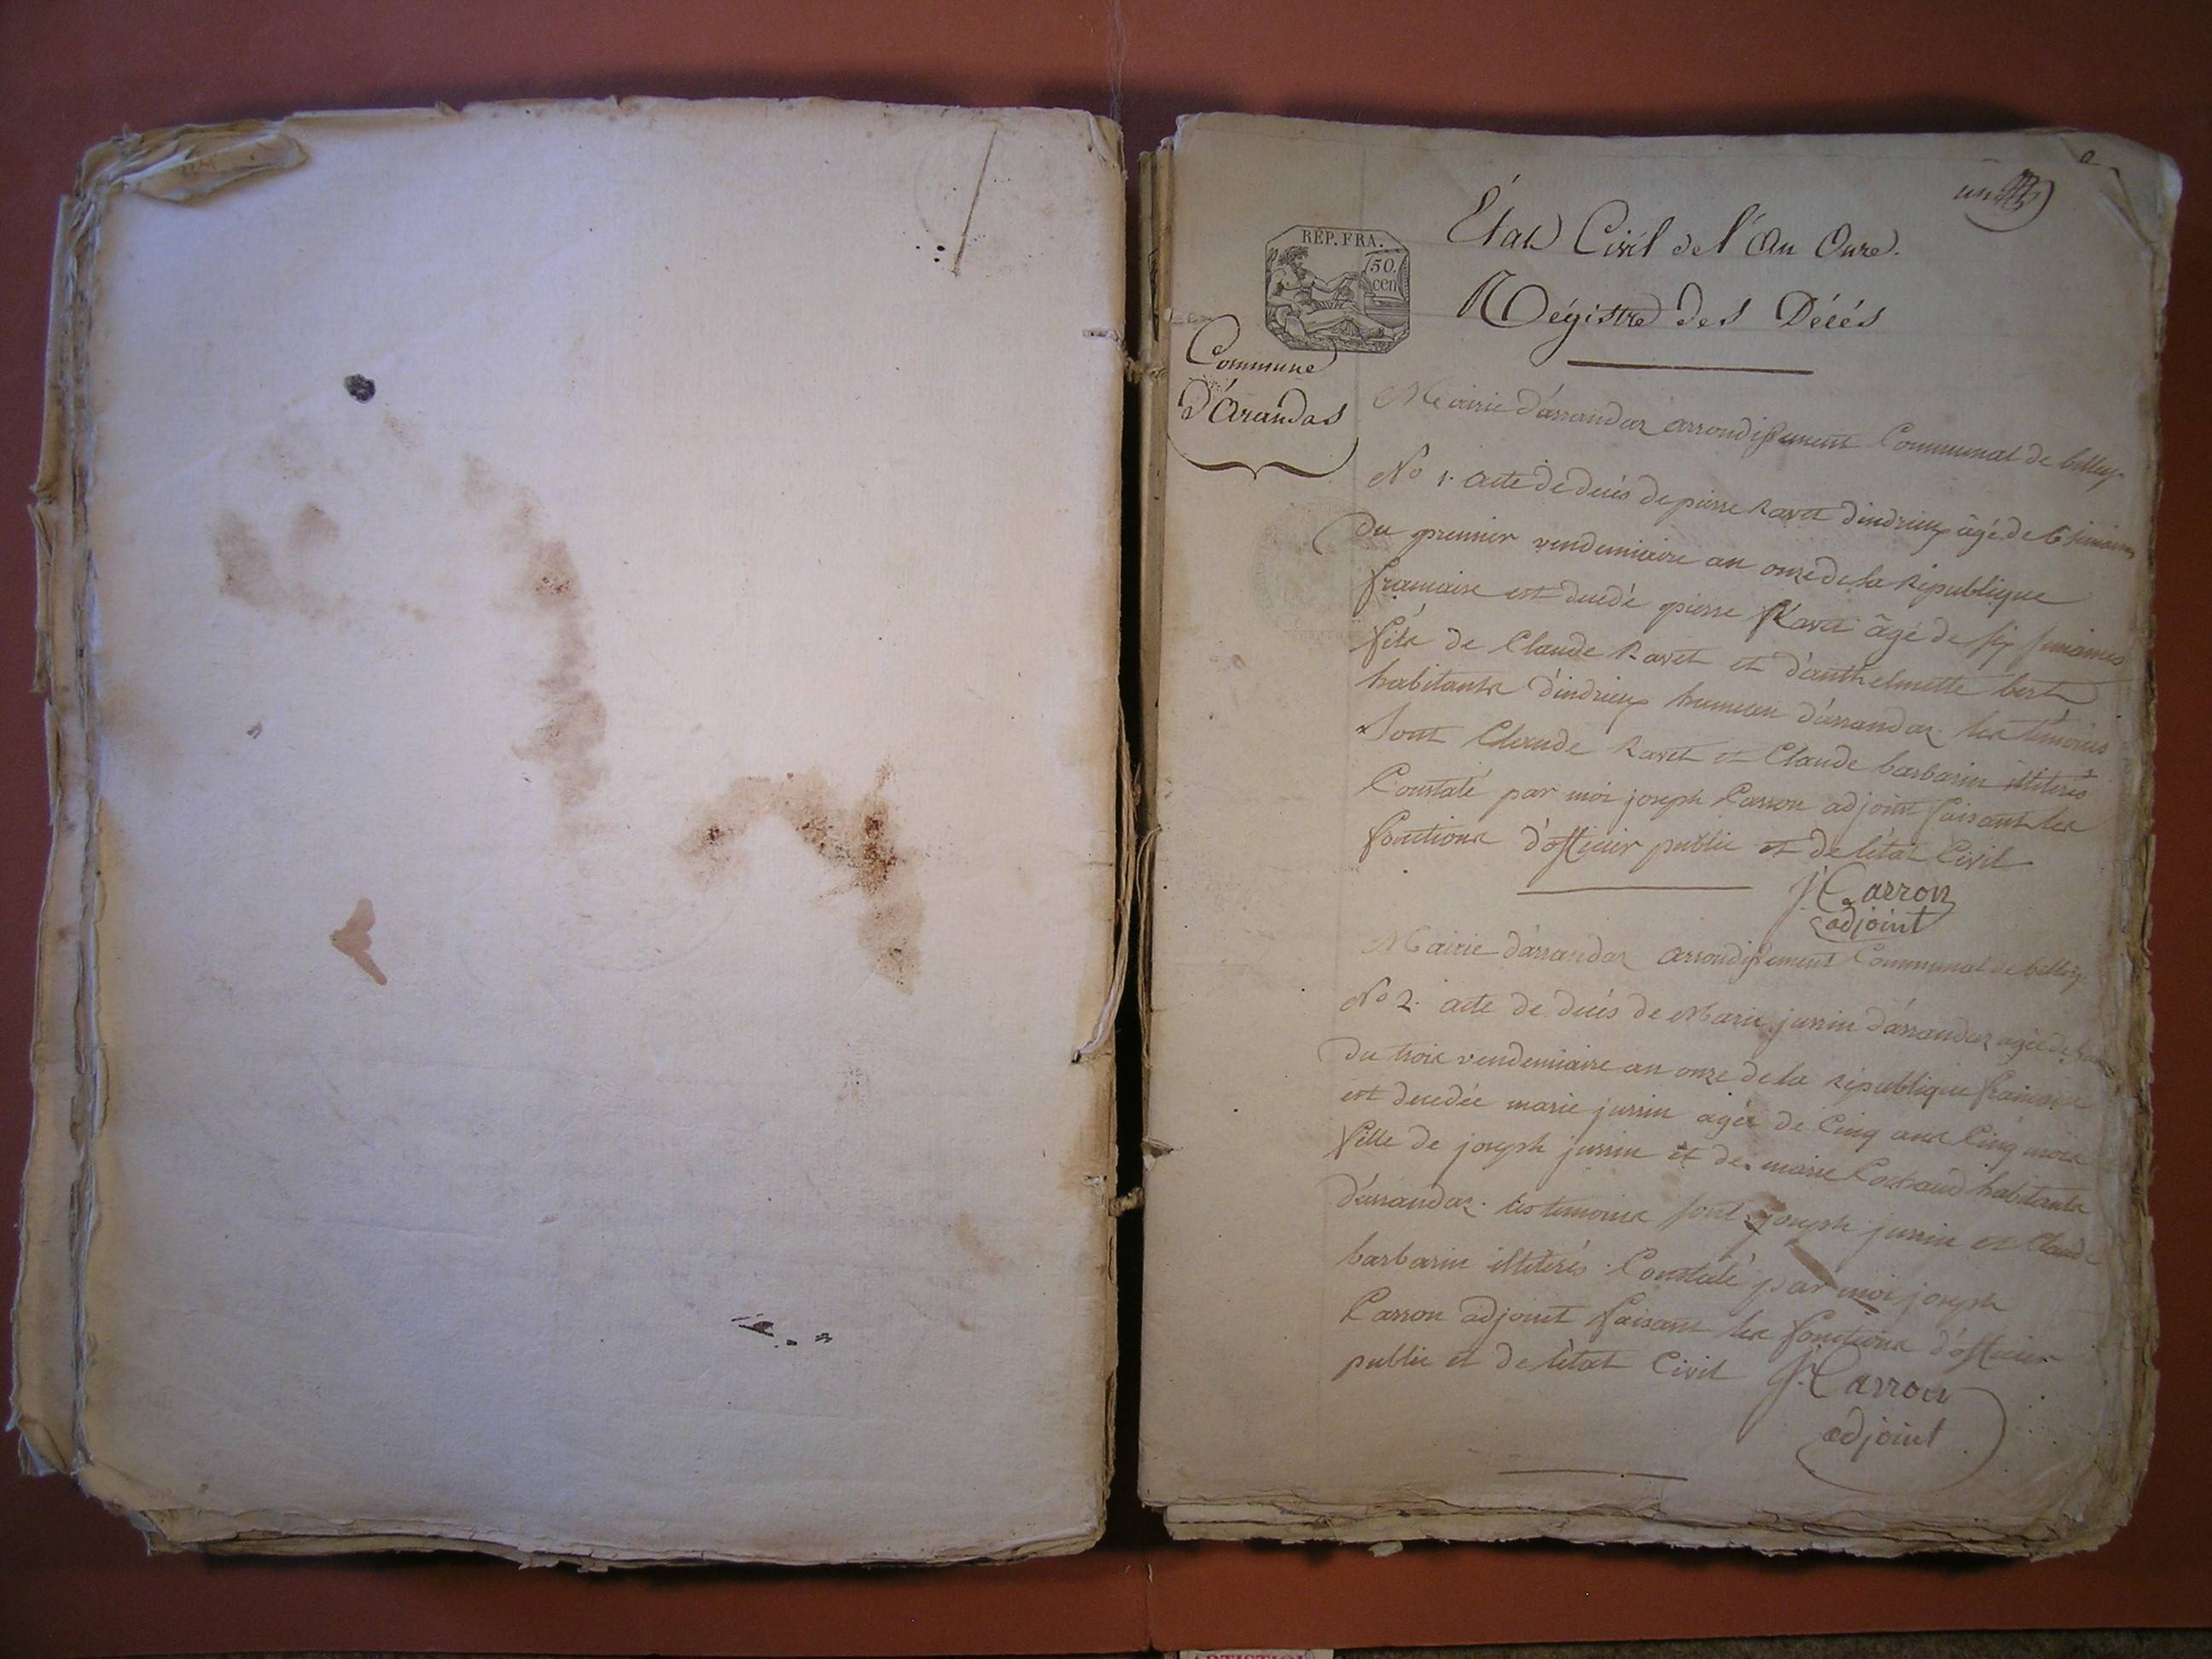 un
État Civil de l'An Onze.
Régistre des Décés
RÉP. FRA.
50.
cen
Commune
d'Arandas
Mairie d'arrandas arrondissement Communal de belley
No 1. acte de decés de pierre Ravet d'indrieux âgé de 6 semaines
Du premier vendemiaire an onze de la République
francaise est decedé pierre Ravet âgé de six semaines
fils de Claude Ravet et d'anthelmette bert
habitants d'indrieux hameau d'arrandas. les témoins
Sont Claude Ravet et Claude barbarin illiterés
Constaté par moi joseph Carron adjoint faisant les
fonctions d'officier public et de l'état Civil
J. Carron
adjoint
Mairie d'arrandas arrondissement Communal de belley
No 2. acte de decés de Marie jussin d'arrandas agée de
Du trois vendemiaire an onze de la République francaise
est decedée marie jussin agée de Cinq ans Cinq mois
fille de joseph jussin et de marie habitants
d'arrandas. les temoins sont joseph jussin et Claude
barbarin illiterés. Constaté par moi joseph
Carron adjoint faisant les fonctions d'officier
public et de l'état Civil J. Carron
adjoint